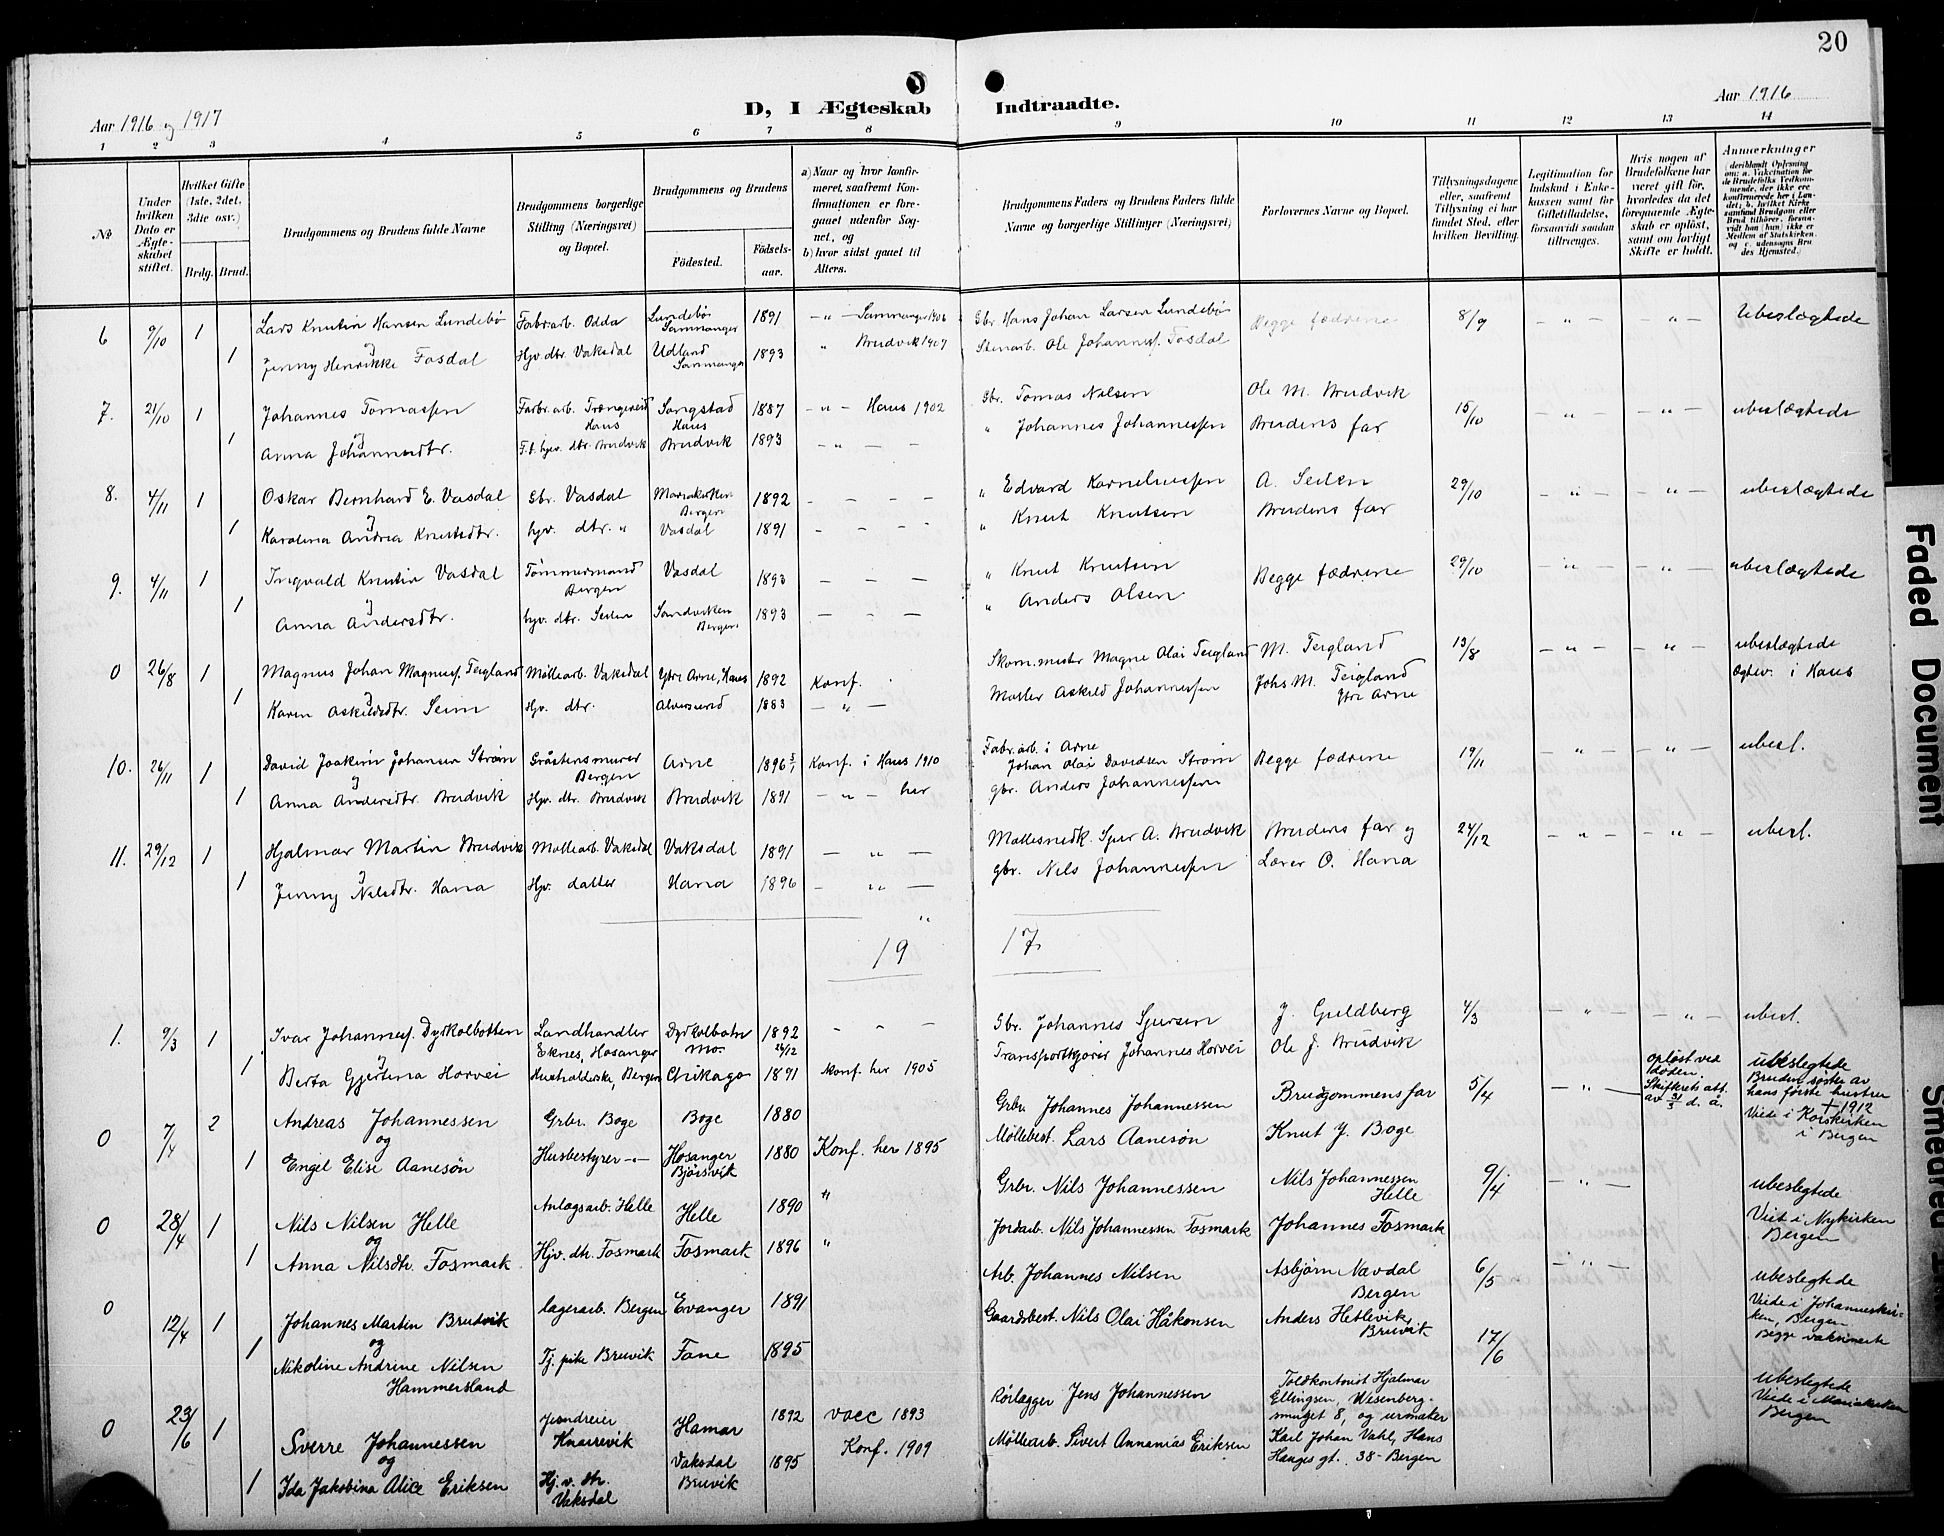 20
D, I Ægteskab Indtraadte.
Aar 1916 og 1917
Aar 1916
1 2 3 4 5 6 7 8 9 10 11 12 13 14
No
Under hvilken Dato er Ægteskabet stiftet.
Hvilket Gifte (1ste, 2det, 3die osv.)
Brdg. Brud.
Brudgommens og Brudens fulde Navne
Brudgommens borgerlige Stilling (Næringsvei) og Bopæl.
Brudgommens og Brudens
Födested. Födselsaar.
a) Naar og hvor konfirmeret, saafremt Konfirmationen er foregaaet udenfor Sognet, og
b) hvor sidst gaaet til Alters.
Brudgommens Faders og Brudens Faders fulde Navne og borgerlige Stillinger (Næringsvei)
Forlovernes Navne og Bopæl.
Tillysningsdagene eller, saafremt Tillysning ei har fundet Sted, efter hvilken Bevilling.
Legitimation for Indskud i Enkekassen samt for Giftetilladelse, forsaavidt saadan tiltrænges.
Hvis nogen af Brudefolkene har været gift før, hvorledes da det foregaaende Ægteskab er opløst, samt om lovligt Skifte er holdt.
Anmærkninger
(deriblandt Oplysning om: a. Vakcination for de Brudefolks Vedkommende, der ikke ere konfirmerede her i Landet; b. hvilket Kirkesamfund Brudgom eller Brud tilhører, forsaavidt han (hun) ikke er Medlem af Statskirken, og c. udensogns Brudes Hjemsted.)
6 9/10 1 Lars Knutin Hansen Lundebø Fabr.arb. Odda Lundebø Sammanger 1891 – " – Sammanger 1906 Gbr. Hans Johan Larsen Lundebø Begge fædrene 8/9 – " – – " – Ubeslægtede
og
1 Jenny Henrikke Fosdal Hjv. dtr. Vaksdal Udland Sammanger 1893 " Brudvik 1907 Stenarb. Ole Johannesf. Fosdal
7. 21/10 1 Johannes Tomassen Fabr.arb. Trængereid Haus Songstad Haus 1887 – " – Haus 1902 Gbr. Tomas Nilsen Ole M. Brudvik 15/10 – " – – " – ubeslægtede
og
1 Anna Johannesdtr. F.t. hjv. dtr. Brudvik Brudvik 1893 – " – – " Johannes Johannessen Brudens far
8. 4/11 1 Oskar Bernhard E. Vasdal Gbr. Vasdal Mariakirken Bergen 1892 – – – – " Edvard Korneliussen A. Seilen 29/10 – " – – " – ubeslægtede
og
1 Karolina Andrea Knutsdtr. hjv. dtr. " Vasdal 1891 – – – – " Knut Knutsen Brudens far
9. 4/11 1 Ingvald Knutin Vasdal Tømmermand Bergen Vasdal 1893 – – – " Knut Knutsen Begge fædrene 29/10 – " – – " – ubeslægtede
og
1 Anna Andersdtr. hjv. dtr. Seilen Sandviken Bergen 1893 – – – " Anders Olsen
0 26/8 1 Magnus Johan Magnusf. Teigland Møllearb. Vaksdal Ytre Arne, Haus 1892 Konf. Skom.mester Magne Olai Teigland M. Teigland 13/8 – " – – " – ubeslægtede
og
1 Karen Askildsdtr. Seim Hjv. dtr. Alversund 1883 – " – Møller Askild Johannessen Johs M. Teigland Ytre Arne Ægtev. i Haus
10. 26/11 1 David Joakim Johansen Strøm Gråstensmurer Bergen Arne 1896 5/1 Konf. i Haus 1910 Fabr.arb. i Arne Johan Olai Davidsen Strøm Begge fædrene 19/11 – " – – " – ubesl.
og
1 Anna Andersdtr. Brudvik Hjv. dtr. Brudvik Brudvik 1891 – " – her gbr. Anders Johannessen
11. 29/12 1 Hjalmar Martin Brudvik Møllearb. Vaksdal Vaksdal 1891 – " – Møllesnedk. Sjur A. Brudvik Brudens far og 24/12 – " – – " – ubesl.
og
1 Jenny Nilsdtr. Hana Hjv. datter Hana 1896 – " – gbr. Nils Johannessen Lærer O. Hana
"
19 17.
1. 9/3 1 Ivar Johannesf. Dyrkolbotten Landhandler Eknes, Hosanger Dyrkolbotn Mo. 1892 26/12 – – – Gbr. Johannes Sjursen J. Guldberg 4/3 – " – – " – ubesl.
og
1 Berta Gjertina Horvei Husholderske, Bergen Chikago 1891 Konf. her 1905 Transportkjører Johannes Horvei Ole J. Brudvik
0 7/4 2 Andreas Johannessen Grbr. Boge Boge 1880 Grbr. Johannes Johannessen Brudgommens far 5/4 – " – opløst ved døden. Skifterets att. av 31/3 d. å. ubeslegtede Bruden søster av hans første hustru † 1912
og
1 Engel Elise Aanesön Husbestyrer –"– Hosanger Bjørsvik 1880 Konf. her 1895 Møllebest. Lars Aanesön Knut J. Boge Viede i Korskirken i Bergen
0 28/4 1 Nils Nilsen Helle Anlægsarb. Helle Helle 1890 " Grbr. Nils Johannessen Nils Johannessen Helle 9/4 – " – ubeslegtede
og
1 Anna Nilsdtr. Fosmark. Hjv. dtr. Fosmark Fosmark 1896 " Jordarb. Nils Johannessen Fosmark Johannes Fosmark Viet i Nykirken Bergen
0 12/4 1 Johannes Martin Brudvik lagerarb. Bergen Evanger 1891 Arb. Johannes Nilsen Asbjørn Nævdal Bergen 6/5 – " – ubeslegtede
og
1 Nikoline Andrine Nilsen Hammersland Tj. pike Bruvik Fane 1895 Gaardsbest. Nils Olai Håkonsen Anders Hetlevik, Bruvik Viede i Johanneskirken, Bergen Begge vaksinerte
0 23/6 1 Sverre Johannessen Knarrevik Hamar 1892 vacc 1893 Rørlægger Jens Johannessen Toldkontorist Hjalmar Ellingsen, Wesenbergsmuget 8, og urmaker 17/6 ubeslegtede
og
1 Ida Jakobina Alice Eriksen Hj.v. dtr. Vaksdal Vaksdal Bruvik 1895 Konf. 1909 Møllearb. Sivert Annanias Eriksen Karl Johan Vahl, Hans Hauges gt. 38 - Bergen Viede i Mariakirken Bergen
Faded Document
Smeared Ink